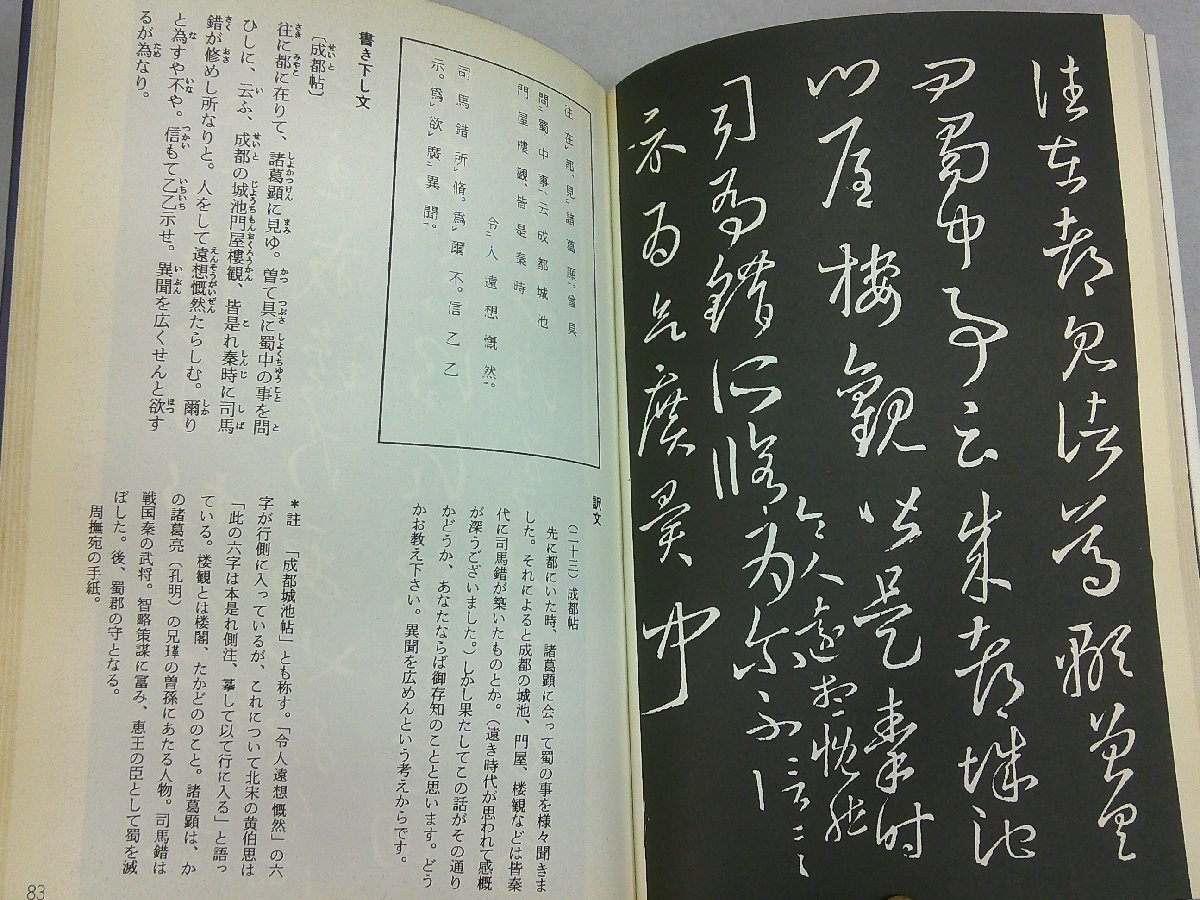 往在都見諸葛顒曽具
問蜀中事云成都城池
門屋樓觀皆是秦時
令人遠想慨然
司馬錯所脩為爾不信一一
示為欲廣異聞
往在都、見諸葛顒、曾具
問蜀中事、云成都城池
門屋樓觀、皆是秦時
令人遠想慨然。
司馬錯所脩。爲爾不。信乙乙
示。爲欲廣異聞。
書き下し文
〔成都帖〕
往に都に在りて、諸葛顕に見ゆ。曽て具に蜀中の事を問
ひしに、云ふ、成都の城池門屋樓観、皆是れ秦時に司馬
錯が修めし所なりと。人をして遠想慨然たらしむ。爾り
と為すや不や。信もて乙乙示せ。異聞を広くせんと欲す
るが為なり。
訳文
（二十三）成都帖
先に都にいた時、諸葛顕に会って蜀の事を様々聞きま
した。それによると成都の城池、門屋、楼観などは皆秦
代に司馬錯が築いたものとか。（遠き時代が思われて感概
が深うございました。）しかし果たしてこの話がその通り
かどうか、あなたならば御存知のことと思います。どう
かお教え下さい。異聞を広めんという考えからです。
＊註　「成都城池帖」とも称す。「令人遠想慨然」の六
字が行側に入っているが、これについて北宋の黄伯思は
「此の六字は本是れ側注、摹して以て行に入る」と語っ
ている。楼観とは楼閣、たかどののこと。諸葛顕は、か
の諸葛亮（孔明）の兄瑾の曽孫にあたる人物。司馬錯は
戦国秦の武将。智略策謀に富み、恵王の臣として蜀を滅
ぼした。後、蜀郡の守となる。
周撫宛の手紙。
83